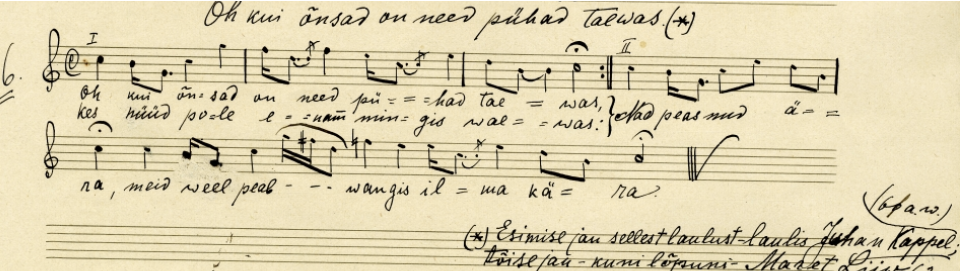 Oh kui õnsad on need pühad taewas. (*)
6.
I II
Oh kui õn-sad on need pü - - -had tae - was,
kes nüüd po-le e - -nam min- gis wae- - was: } Nad peasnud ä- -
ra, meid weel peab - - - wangis il - ma kä- ra.
(6 p. a. w.)
(*) Esimise jau sellest laulust-laulis Juhan Kappel;
tõise jau - kuni lõpuni - Maret